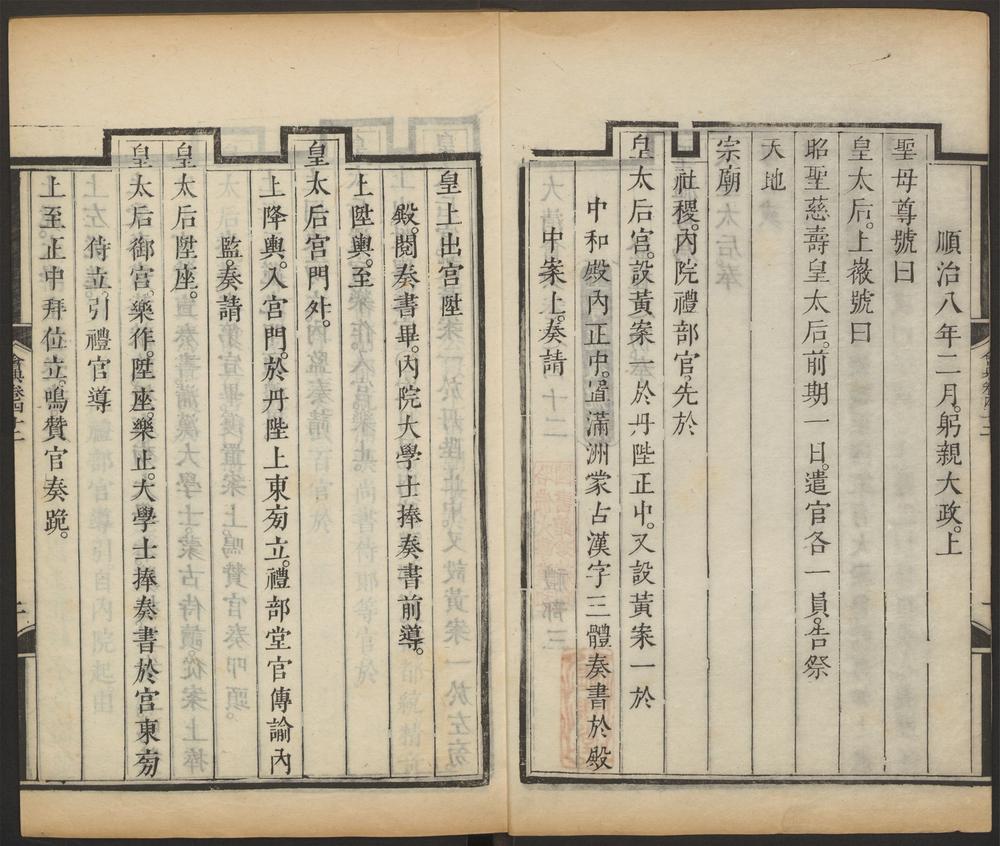 順治八年二月。躬親大政。上
聖母尊號曰
皇太后。上徽號曰
昭聖慈壽皇太后。前期一日。遣官各一員。告祭
天地
宗廟
社稷。內院禮部官。先於
皇太后宮。設黃案一於丹陛正中。又設黃案一於
中和殿內正中。置滿洲蒙古漢字三體奏書於殿
中案上。奏請
皇上出宮陞
殿。閱奏書畢。內院大學士捧奏書前導。
上陞輿。至
皇太后宮門外。
上降輿。入宮門。於丹陛上東旁立。禮部堂官傳諭內
監。奏請
皇太后陞座。
皇太后御宮。樂作。陞座。樂止。大學士捧奏書於宮東旁
侍立。引禮官導
上至正中拜位立。鳴贊官奏跪。
會典卷四十二